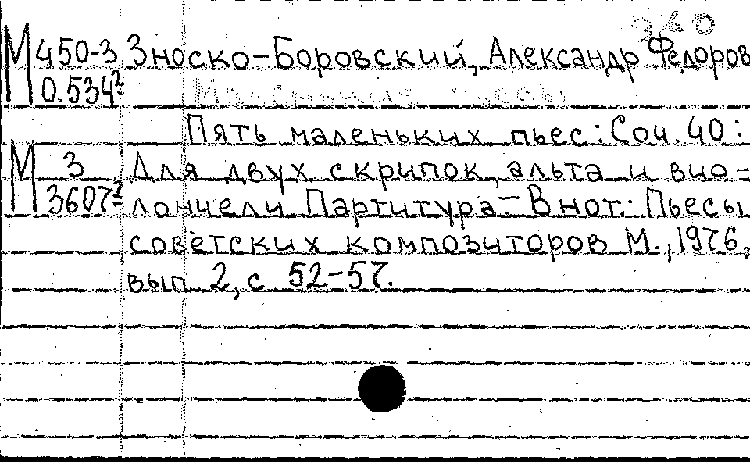 360
М 450-3 Зноско-Боровский, Александр Федоров
0.534²
Пять маленьких пьес: Соч. 40:
М 3 Для двух скрипок, альта и вио-
3607² лончели Партитура - В нот.: Пьесы
советских композиторов М., 1976,
вып 2, с 52-57.